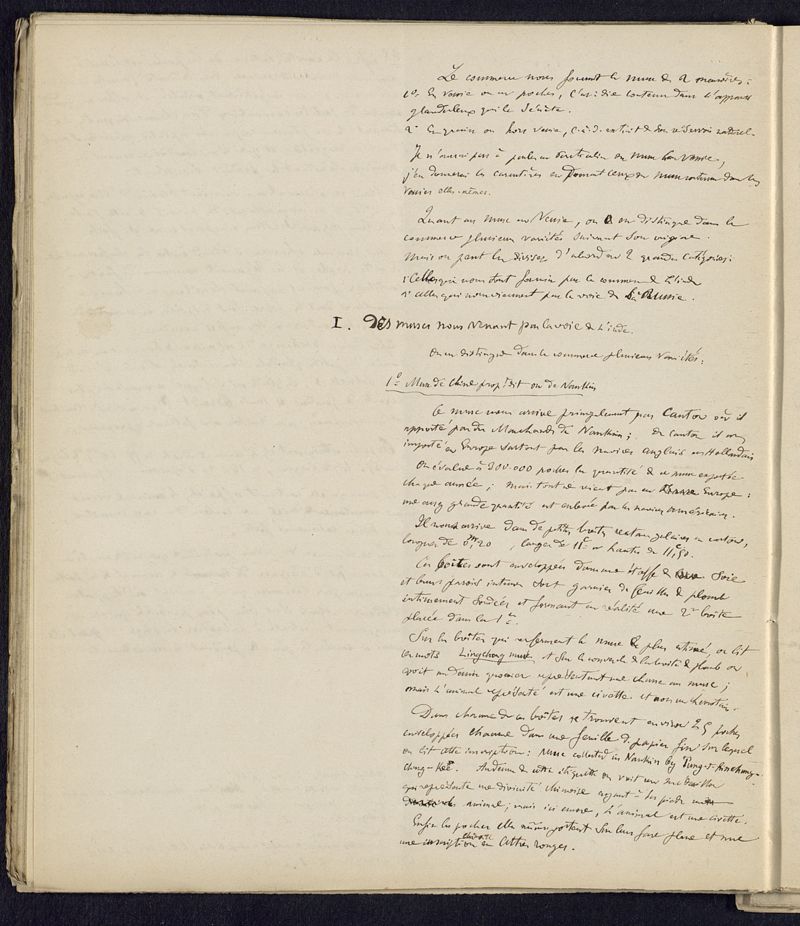 Le commerce nous fournit le musc de 2 manières:
1° En vessie ou en poches, c'est à dire contenu dans l'appareil
glanduleux qui le sécrète.
2° En grains ou hors vessie, c-à-d. extrait de son réservoir naturel.
Je n'aurai pas à parler en particulier du musc hors vessie,
j'en donnerai les caractères en donnant ceux du musc contenu dans les
vessies elles-mêmes.
Quant au musc en vessie, on en distingue dans le
commerce plusieurs variétés suivant son origine.
Mais on peut les diviser d'abord en 2 grandes catégories:
1° Celles qui nous sont fournies par le commerce de l'Inde
2° celles qui nous viennent par la voie de la Russie.
I. Des muscs nous venant par la voie de l'Inde.
On en distingue dans le commerce plusieurs variétés:
1° Musc de Chine propt dit ou de Nankin
Ce musc nous arrive principalement par Canton où il
apporté par des Marchands de Nankin; de Canton il est
importé en Europe surtout par les navires anglais et Hollandais
On évalue à 200.000 poches la quantité de ce musc exportée
chaque année; mais tout ne vient pas en Europe:
une assez grande quantité est enlevée par les navires américains.
Il nous arrive dans de petites boîtes rectangulaires en carton,
longues de 0m,20, larges de 11c et hautes de 11c,50.
Ces boîtes sont enveloppées dans une étoffe de soie
et leurs parois internes sont garnies de feuilles de plomb
intimement soudées et formant en réalité une 2e boîte
placée dans la 1ère.
Sur les boîtes qui renferment le musc le plus estimé, on lit
les mots Lingchong musc, et sur le couvercle de la boîte de plomb on
voit un dessin grossier représentant une chasse au musc;
mais l'animal représenté est une civette et non un chevrotain.
Dans chacune de ces boîtes se trouvent environ 25 poches
enveloppées chacune dans une feuille de papier fin sur lequel
on lit cette inscription: Musc collected in Nankin by
Au dessous de cette étiquette on voit une
qui représente une divinité chinoise ayant à ses pieds un
animal; mais ici encore, l'animal est une civette.
Enfin les poches elles mêmes portent sur leur face plane et nue
une inscription chinoise en lettres rouges.